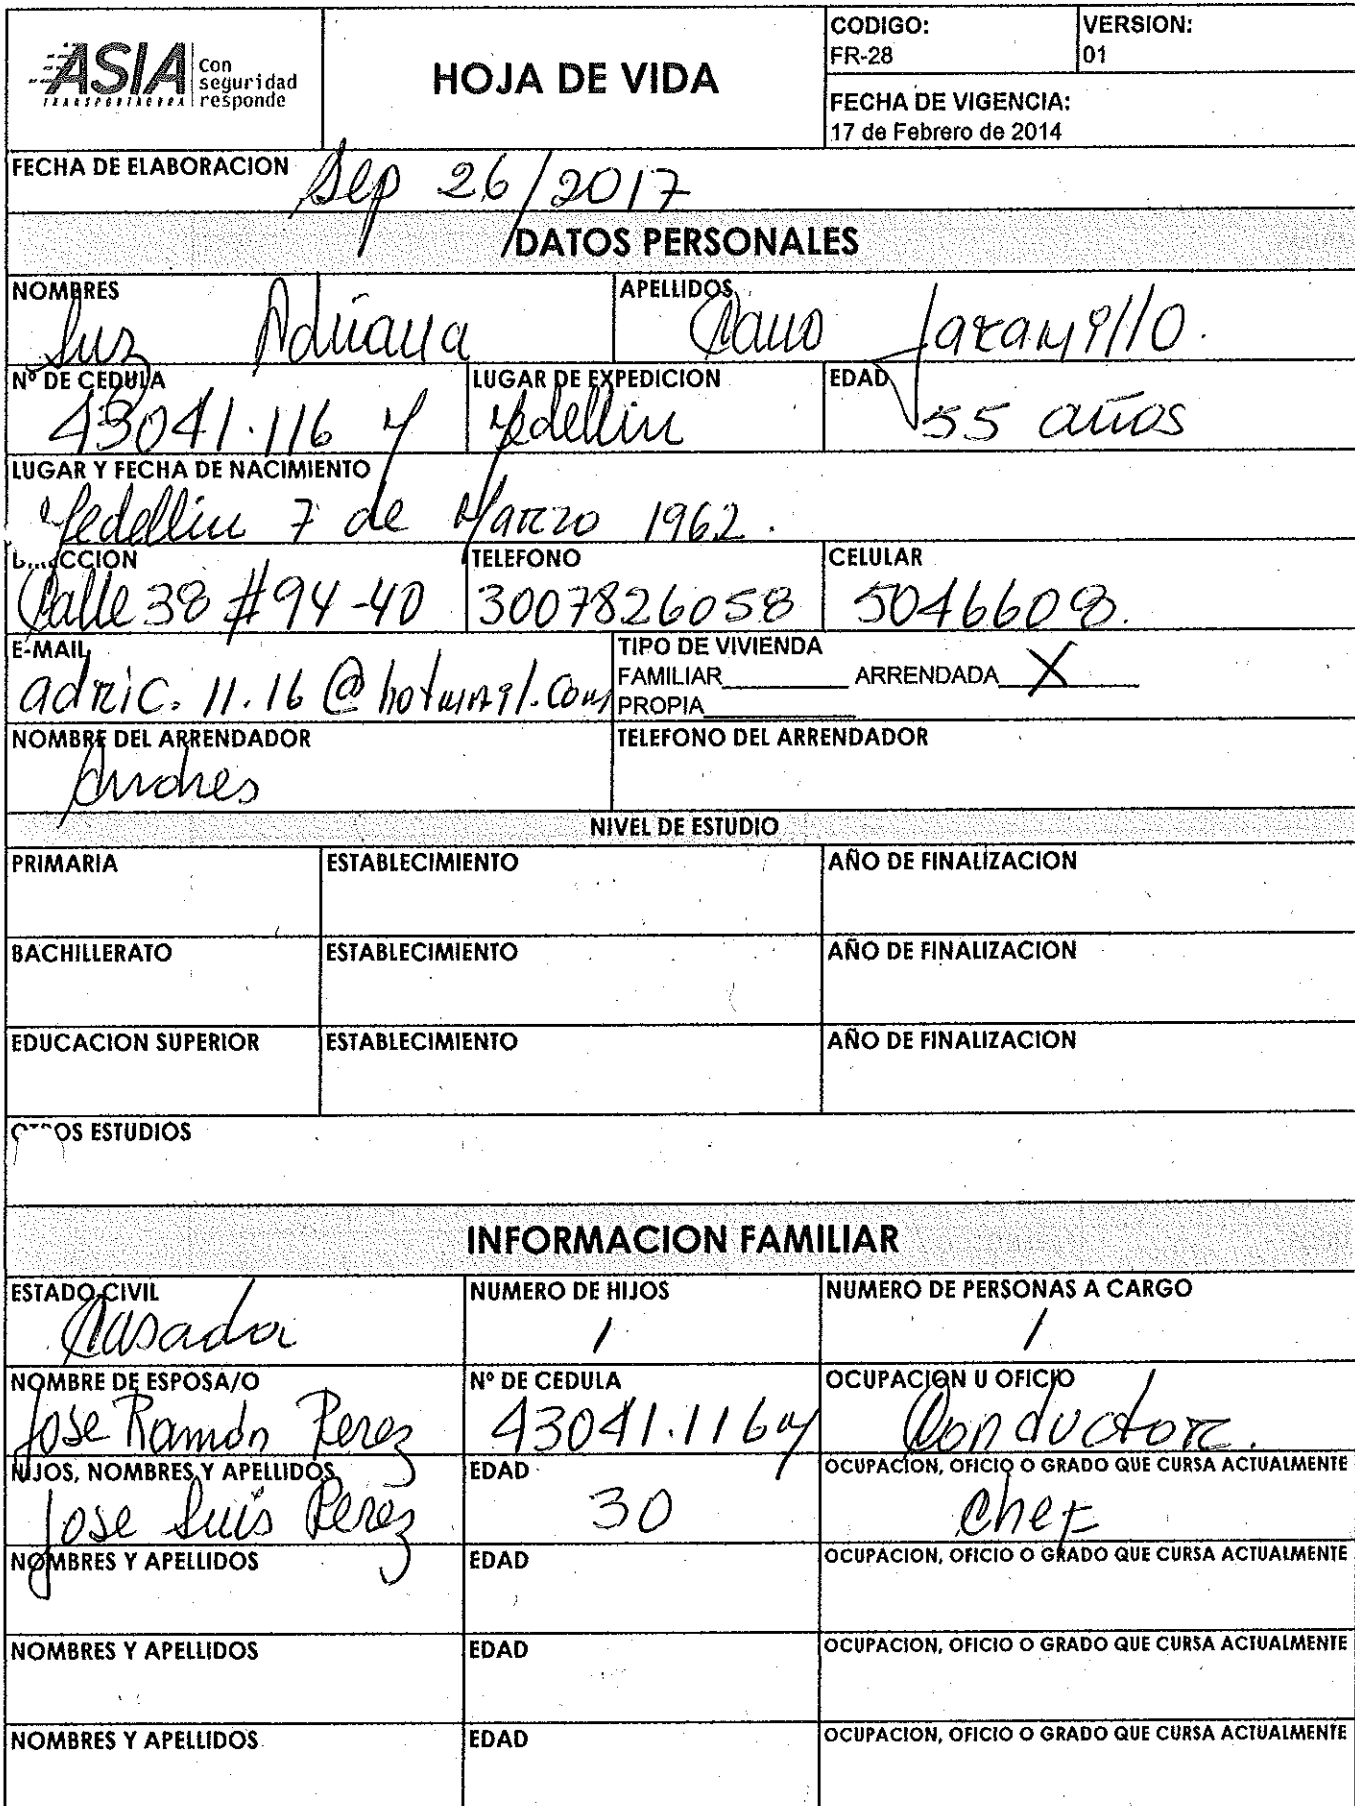 ASIA
TRANSPORTADORA
Con
seguridad
responde
HOJA DE VIDA
CODIGO:
FR-28
VERSION:
01
FECHA DE VIGENCIA:
17 de Febrero de 2014
FECHA DE ELABORACION Sep 26/2017
DATOS PERSONALES
NOMBRES
Luz Adriana
APELLIDOS
Cano Jaramillo.
Nº DE CEDULA
43041.116
LUGAR DE EXPEDICION
Medellin
EDAD
55 años
LUGAR Y FECHA DE NACIMIENTO
Medellin 7 de Marzo 1962.
CCION
Calle 38 #94-40
TELEFONO
3007826058
CELULAR
5046608.
E-MAIL
adric.11.16@hotmail.com
TIPO DE VIVIENDA
FAMILIAR__________ ARRENDADA X
PROPIA__________
NOMBRE DEL ARRENDADOR
Andres
TELEFONO DEL ARRENDADOR
NIVEL DE ESTUDIO
PRIMARIA ESTABLECIMIENTO AÑO DE FINALIZACION
BACHILLERATO ESTABLECIMIENTO AÑO DE FINALIZACION
EDUCACION SUPERIOR ESTABLECIMIENTO AÑO DE FINALIZACION
OS ESTUDIOS
INFORMACION FAMILIAR
ESTADO CIVIL
Casada
NUMERO DE HIJOS
1
NUMERO DE PERSONAS A CARGO
1
NOMBRE DE ESPOSA/O
Jose Ramón Perez
Nº DE CEDULA
43041.116
OCUPACION U OFICIO
Conductor.
HIJOS, NOMBRES Y APELLIDOS
Jose Luis Perez
EDAD
30
OCUPACION, OFICIO O GRADO QUE CURSA ACTUALMENTE
Chef
NOMBRES Y APELLIDOS EDAD OCUPACION, OFICIO O GRADO QUE CURSA ACTUALMENTE
NOMBRES Y APELLIDOS EDAD OCUPACION, OFICIO O GRADO QUE CURSA ACTUALMENTE
NOMBRES Y APELLIDOS EDAD OCUPACION, OFICIO O GRADO QUE CURSA ACTUALMENTE